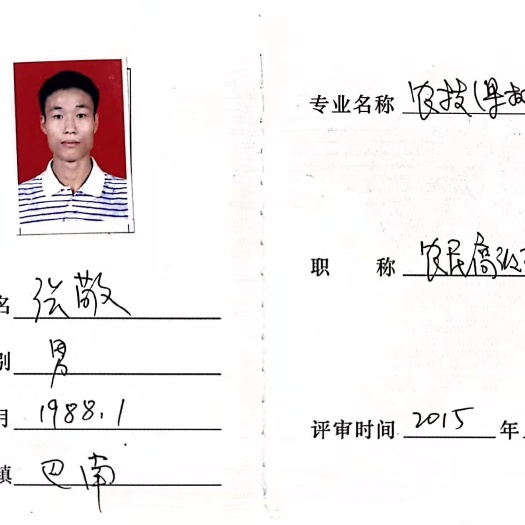 名 张敬
别 男
月 1988.1
镇 巴南
专业名称 农技(果树
职 称 农民高级
评审时间 2015 年